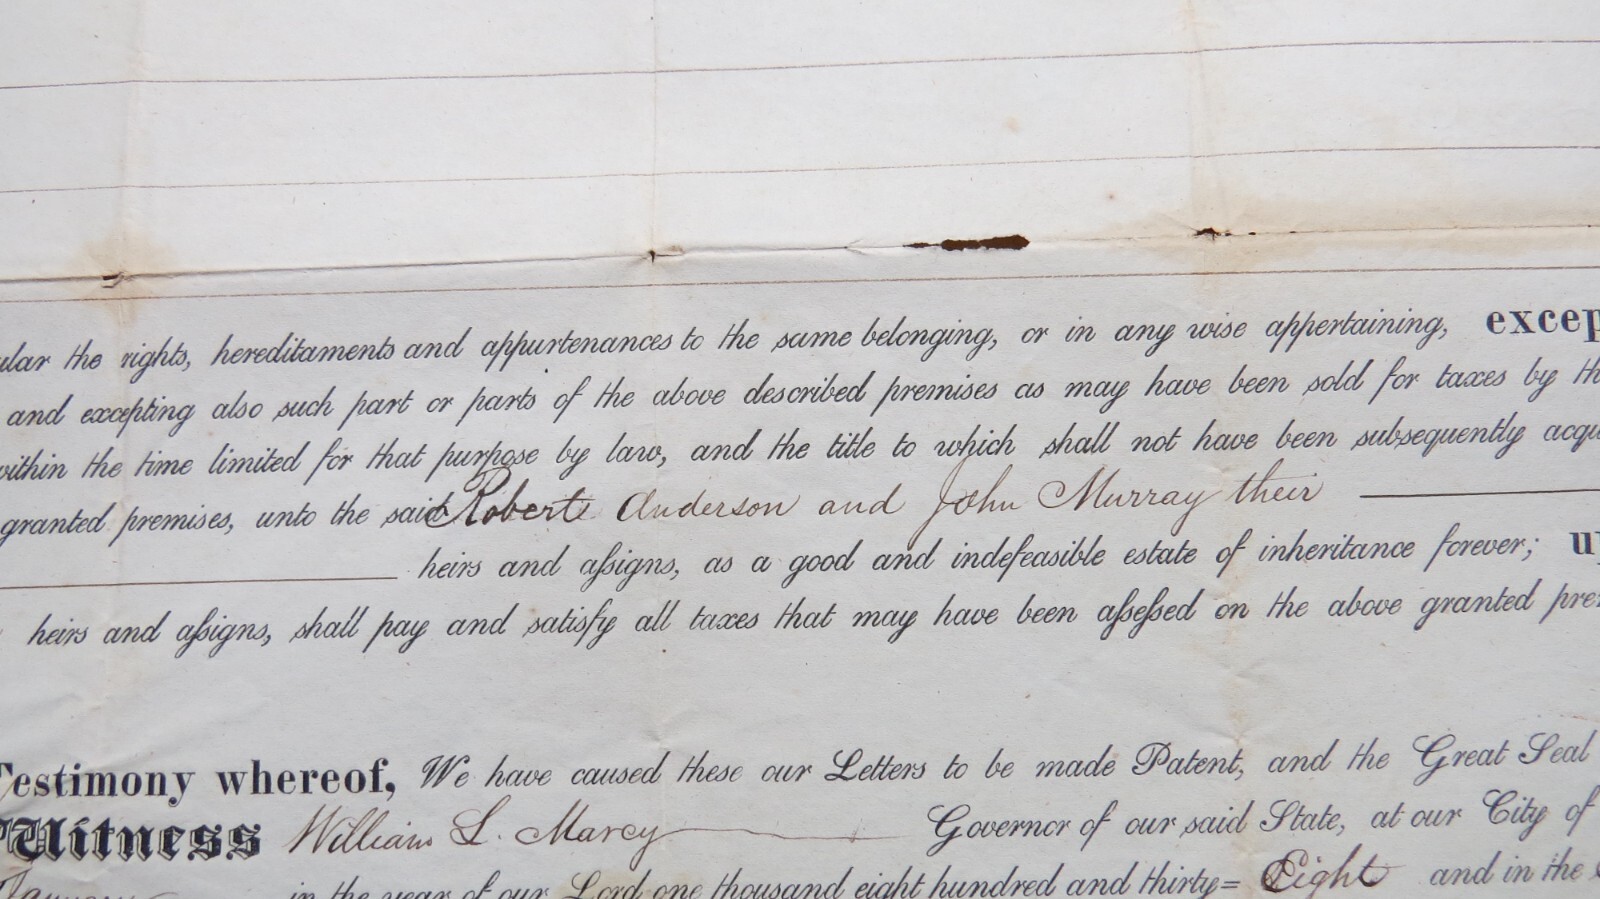 ular the rights, hereditaments and appurtenances to the same belonging, or in any wise appertaining, excep
and excepting also such part or parts of the above described premises as may have been sold for taxes by th
within the time limited for that purpose by law, and the title to which shall not have been subsequently acqu
granted premises, unto the said Robert Anderson and John Murray their
heirs and aſsigns, as a good and indefeasible estate of inheritance forever; up
heirs and aſsigns, shall pay and satisfy all taxes that may have been aſseſsed on the above granted prem
Testimony whereof, We have caused these our Letters to be made Patent, and the Great Seal
Witness William L. Marcy Governor of our said State, at our City of
January in the year of our Lord one thousand eight hundred and thirty= Eight and in the